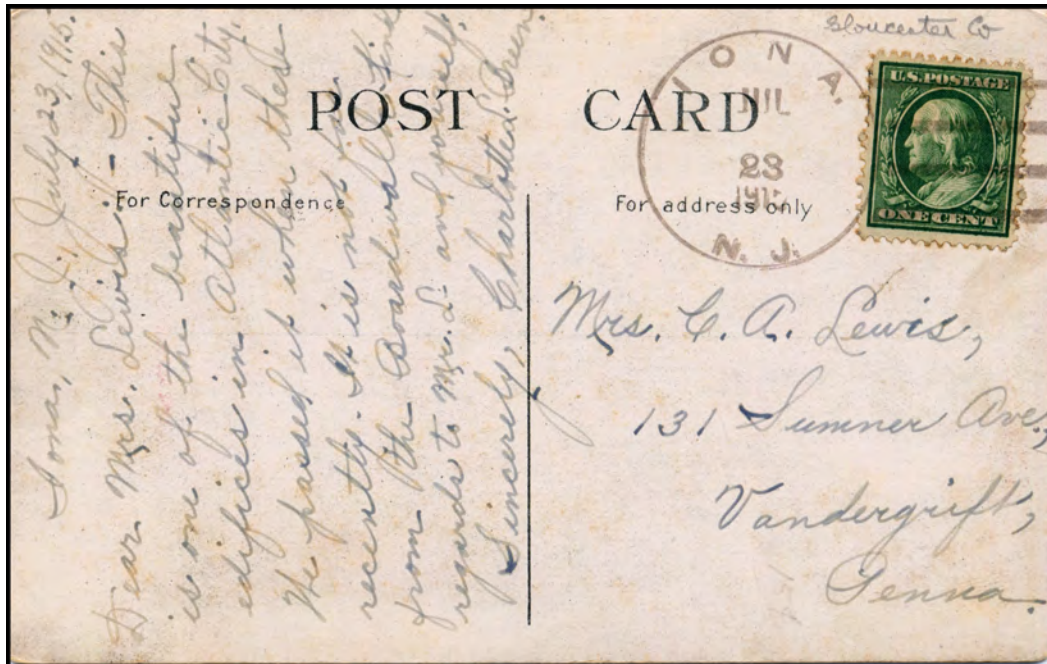 Gloucester Co
IONA.
JUL
23
N. J.
U.S. POSTAGE
ONE CENT
POST CARD
For Correspondence
For address only
Iona, N. J., July 23, 1915.
Dear Mrs. Lewis:- This
is one of the beautiful
edifices in Atlantic City.
We passed it when there
recently. It is not far
from the Boardwalk. Kind
regards to Mr. L. and yourself.
Sincerely, Charlotte
Mrs. C. A. Lewis,
131 Sumner Ave.,
Vandergrift,
Penna.